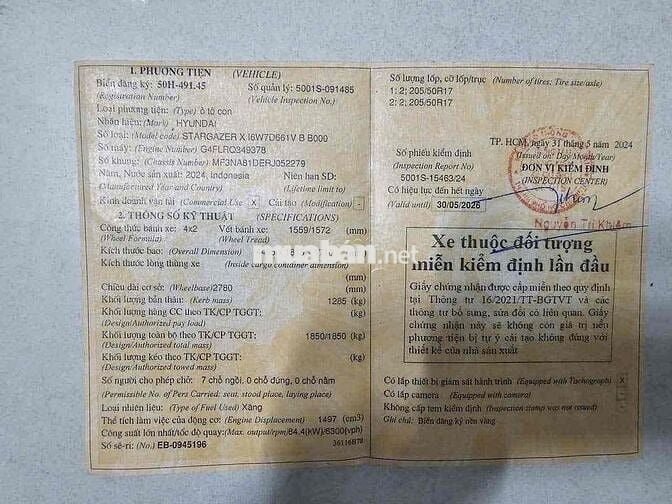 1. PHƯƠNG TIỆN (VEHICLE)
Biển đăng ký: 50H-491.45 Số quản lý: 5001S-091485
(Registration Number) (Vehicle Inspection No.)
Loại phương tiện: (Type) ô tô con
Nhãn hiệu: (Mark) HYUNDAI
Số loại: (Model code) STARGAZER X I6W7D661V B B000
Số máy: (Engine Number) G4FLRQ349378
Số khung: (Chassis Number) MF3NA81DERJ052279
Năm, Nước sản xuất: 2024, Indonesia Niên hạn SD:
(Manufactured Year and Country) (Lifetime limit to)
Kinh doanh vận tải (Commercial Use) X Cải tạo (Modification) -
2. THÔNG SỐ KỸ THUẬT (SPECIFICATIONS)
Công thức bánh xe: 4x2 Vết bánh xe: 1559/1572 (mm)
(Wheel Formula) (Wheel Tread)
Kích thước bao: (Overall Dimension) (mm)
Kích thước lòng thùng xe (Inside cargo container dimension)
(mm)
Chiều dài cơ sở: (Wheelbase) 2780 (mm)
Khối lượng bản thân: (Kerb mass) 1285 (kg)
Khối lượng hàng CC theo TK/CP TGGT: (kg)
(Design/Authorized pay load)
Khối lượng toàn bộ theo TK/CP TGGT: 1850/1850 (kg)
(Design/Authorized total mass)
Khối lượng kéo theo TK/CP TGGT: (kg)
(Design/Authorized towed mass)
Số người cho phép chở: 7 chỗ ngồi, 0 chỗ đứng, 0 chỗ nằm
(Permissible No. of Pers Carried: seat, stood place, laying place)
Loại nhiên liệu: (Type of Fuel Used) Xăng
Thể tích làm việc của động cơ: (Engine Displacement) 1497 (cm3)
Công suất lớn nhất/tốc độ quay: (Max. output/rpm) 84.4(kW)/6300(vph)
Số sê-ri: (No.) EB-0945196 36116B78
Số lượng lốp, cỡ lốp/trục (Number of tires; Tire size/axle)
1: 2; 205/50R17
2: 2; 205/50R17
TP. HCM, ngày 31 tháng 5 năm 2024
Số phiếu kiểm định (Issued on: Day/Month/Year)
(Inspection Report No) ĐƠN VỊ KIỂM ĐỊNH
5001S-15463/24 (INSPECTION CENTER)
Có hiệu lực đến hết ngày
(Valid until) 30/05/2026
Nguyễn Tri Khiêm
Xe thuộc đối tượng
miễn kiểm định lần đầu
Giấy chứng nhận được cấp miễn theo quy định
tại Thông tư 16/2021/TT-BGTVT và các
thông tư bổ sung, sửa đổi có liên quan. Giấy
chứng nhận này sẽ không còn giá trị nếu
phương tiện bị tự ý cải tạo không đúng với
thiết kế của nhà sản xuất
Có lắp thiết bị giám sát hành trình (Equipped with Tachograph) X
Có lắp camera (Equipped with camera)
Không cấp tem kiểm định (Inspection stamp was not issued)
Ghi chú: Biển đăng ký nền vàng
muaban.net